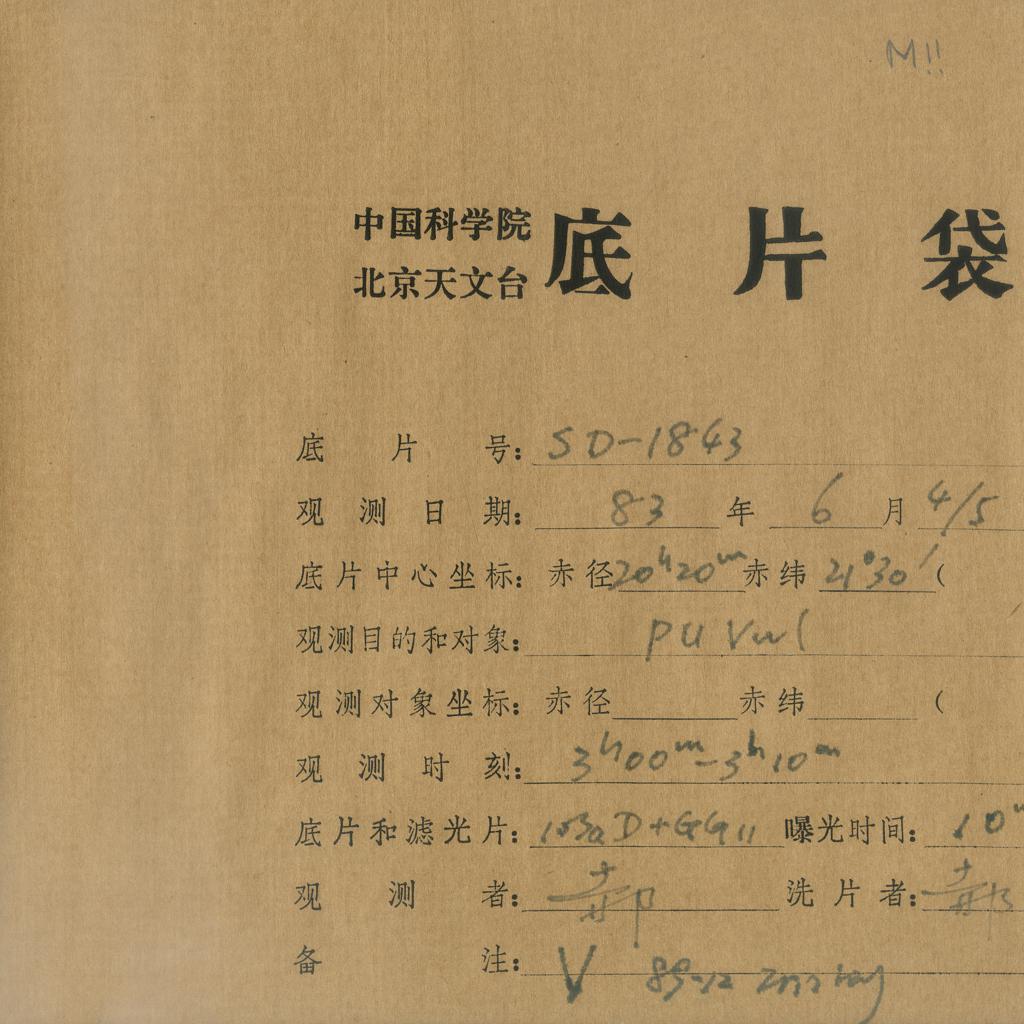 M!!
中国科学院
北京天文台
底片袋
底片号: SD-1843
观测日期: 83 年 6 月 4/5
底片中心坐标: 赤径 20h20m 赤纬 21°30′ (
观测目的和对象: PU Vul
观测对象坐标: 赤径 赤纬 (
观测时刻: 3h00m-3h10m
底片和滤光片: 103aD+GG11 曝光时间: 10m
观测者: 郝 洗片者: 郝
备注: V 89-12